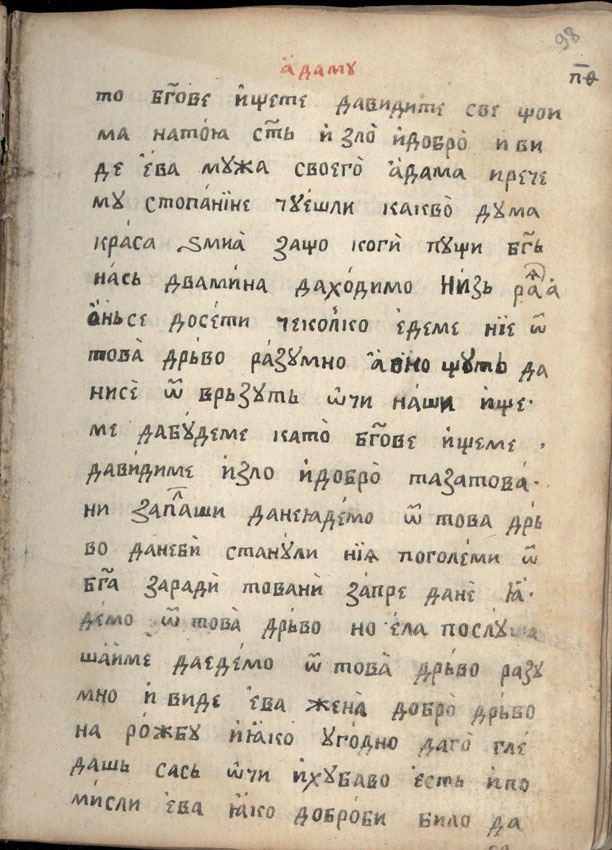 98
а҆дамꙋ
п҃ѳ
то бг҃ове и҆щете давидите све щои
ма натою ст҃ь и҆ ꙁло̀ и҆добро̀ и ви
де е҆ва мꙋжа своего̀ а҆дама ирече
мꙋ стопа́нїне чꙋешли какво̀ дꙋма
кра́са ѕмиа̀ ꙁащо коги̏ пꙋщи бг҃ь
на́сь двами́на дахо́димо ниꙁь раꙗ
ѻ҆ньсе досети чеко́лко е҆деме нїе ѿ
това̀ дрьво раꙁꙋмно а҆вно щꙋть да
нисѐ ѿ врьꙁꙋть ѡ҆чи на́ши и҆ще
ме дабꙋ́деме като̀ бг҃ове и҆щеме
дави́диме и҆ꙁло и҆добро̀ таꙁатова̀
ни ꙁаплаши данеꙗде́мо ѿ това дрь
во данебѝ станꙋ́ли нїꙗ поголе́ми ѿ
бг҃а ꙁаради̏ тованѝ ꙁа́пре дане ꙗ҆
де́мо ѿ това̀ дрьво но е҆ла послꙋша
ша́име даеде́мо ѿ това̀ дрьво раꙁꙋ
мно и҆ виде е҆ва жена̀ добро̀ дрьво
на ро́жбꙋ и҆ꙗко ꙋго́дно даго̀ гле
дашь сась ѡ҆чи и҆хꙋбаво е҆сть и҆по
ми́сли е҆ва ꙗ҆ко доброби било да